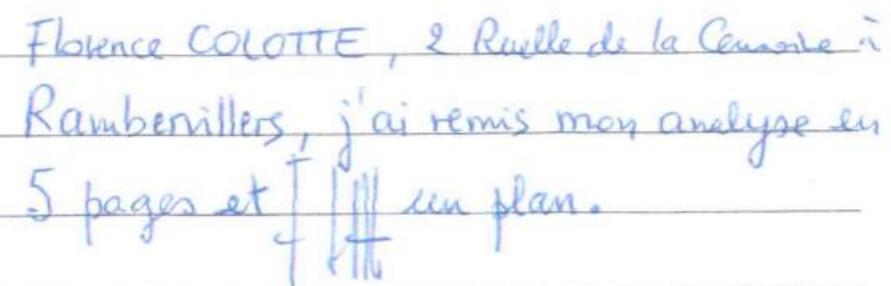 Florence COLOTTE, 2 Ruelle de la à
Rambervillers, j'ai remis mon analyse en
5 pages et un plan.